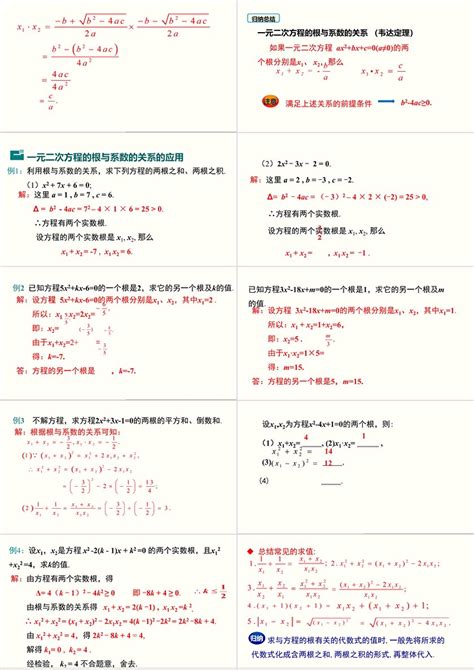 x₁·x₂ = (-b+√(b²-4ac))/2a × (-b-√(b²-4ac))/2a
= (b²-(b²-4ac))/4a²
= 4ac/4a²
= c/a.
归纳总结
一元二次方程的根与系数的关系 （韦达定理）
如果一元二次方程 ax²+bx+c=0(a≠0)的两
个根分别是x₁、x₂,那么
x₁ + x₂ = -b/a x₁·x₂ = c/a
注意 满足上述关系的前提条件 b²-4ac≥0.
一元二次方程的根与系数的关系的应用
例1：利用根与系数的关系，求下列方程的两根之和、两根之积.
（1）x² + 7x + 6 = 0;
解：这里 a = 1 , b = 7 , c = 6.
Δ = b² - 4ac = 7² – 4 × 1 × 6 = 25 > 0.
∴方程有两个实数根.
设方程的两个实数根是 x₁, x₂, 那么
x₁ + x₂ = -7 , x₁ x₂ = 6.
（2）2x² - 3x - 2 = 0.
解：这里 a = 2 , b = -3 , c = -2.
Δ= b² - 4ac = （- 3）² – 4 × 2 × (-2) = 25 > 0,
∴方程有两个实数根.
设方程的两个实数根是 x₁, x₂, 那么
x₁ + x₂ = 3/2 , x₁ x₂ = -1 .
例2 已知方程5x²+kx-6=0的一个根是2，求它的另一个根及k的值.
解：设方程 5x²+kx-6=0的两个根分别是x₁、x₂，其中x₁=2 .
所以：x₁·x₂=2x₂= -6/5
即：x₂= -3/5
由于x₁+x₂=2+ (-3/5) =
得：k=-7.
答：方程的另一个根是 ，k=-7.
已知方程3x²-18x+m=0的一个根是1，求它的另一个根及m
的值.
解：设方程 3x²-18x+m=0的两个根分别是x₁、x₂，其中x₁=1.
所以：x₁ + x₂=1+x₂=6,
即：x₂=5 .
由于x₁·x₂=1×5= m/3
得：m=15.
答：方程的另一个根是5，m=15.
例3 不解方程，求方程2x²+3x-1=0的两根的平方和、倒数和.
解：根据根与系数的关系可知：
x₁ + x₂ = -3/2 , x₁·x₂ = -1/2
(1)∵ (x₁ + x₂)² = x₁² + 2x₁x₂ + x₂²,
∴ x₁² + x₂² = (x₁ + x₂)² - 2x₁x₂
= (-3/2)² - 2×(-1/2) = 13/4;
(2) 1/x₁ + 1/x₂ = (x₁+x₂)/(x₁x₂) = (-3/2) ÷ (-1/2) = 3.
设x₁,x₂为方程x²-4x+1=0的两个根，则：
（1）x₁+x₂= 4 , (2)x₁·x₂= 1 ,
x₁² + x₂² = 14
(3) (x₁ - x₂)² = 12
(4)
例4：设x₁，x₂是方程 x² -2(k - 1)x + k² =0 的两个实数根，且x₁²
+x₂² =4，求k的值.
解：由方程有两个实数根，得
Δ= 4（k - 1）² - 4k² ≥ 0 即 -8k + 4 ≥ 0. ∴ k ≤ 1/2
由根与系数的关系得 x₁ + x₂ = 2(k -1) , x₁ x₂ =k ².
∴ x₁² + x₂² = (x₁ + x₂)² - 2x₁x₂ = 4(k -1)² -2k² = 2k² -8k + 4.
由 x₁² + x₂² = 4，得 2k² - 8k + 4 = 4,
解得 k₁= 0 , k₂ = 4 .
经检验， k₂ = 4 不合题意，舍去.
◆ 总结常见的求值:
1. 1/x₁ + 1/x₂ = (x₁+x₂)/(x₁x₂) 2. x₁² + x₂² = (x₁ + x₂)² - 2x₁x₂;
3. x₁/x₂ + x₂/x₁ = (x₁²+x₂²)/(x₁x₂) = ((x₁+x₂)²-2x₁x₂)/(x₁x₂);
4.(x₁ + 1)(x₂ + 1) = x₁x₂ + (x₁ + x₂) + 1;
5.|x₁ - x₂| = √((x₁-x₂)²) = √((x₁+x₂)²-4x₁x₂).
归纳 求与方程的根有关的代数式的值时,一般先将所求的
代数式化成含两根之和,两根之积的形式,再整体代入.